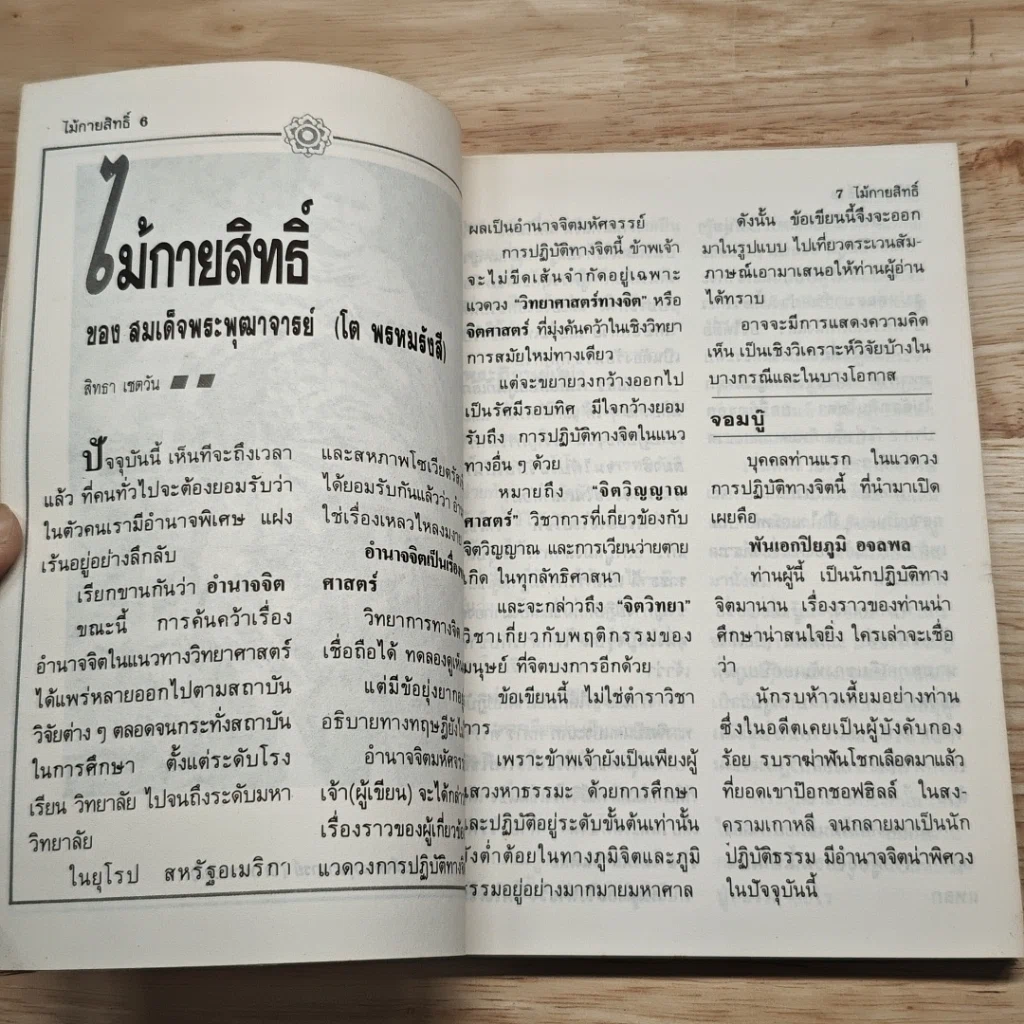 ไม้กายสิทธิ์ 6
ไม้กายสิทธิ์
ของ สมเด็จพระพุฒาจารย์ (โต พรหมรังสี)
สิทธา เชตวัน
ปัจจุบันนี้ เห็นทีจะถึงเวลา
แล้ว ที่คนทั่วไปจะต้องยอมรับว่า
ในตัวคนเรามีอำนาจพิเศษ แฝง
เร้นอยู่อย่างลึกลับ
เรียกขานกันว่า อำนาจจิต
ขณะนี้ การค้นคว้าเรื่อง
อำนาจจิตในแนวทางวิทยาศาสตร์
ได้แพร่หลายออกไปตามสถาบัน
วิจัยต่าง ๆ ตลอดจนกระทั่งสถาบัน
ในการศึกษา ตั้งแต่ระดับโรง
เรียน วิทยาลัย ไปจนถึงระดับมหา
วิทยาลัย
ในยุโรป สหรัฐอเมริกา
และสหภาพโซเวียตรัสเซีย
ได้ยอมรับกันแล้วว่า
ใช่เรื่องเหลวไหลงมงาย
อำนาจจิตเป็นเรื่อง
ศาสตร์
วิทยาการทางจิต
เชื่อถือได้ ทดลองดูเห็น
แต่มีข้อยุ่งยาก
อธิบายทางทฤษฎียัง
อำนาจจิตมหัศจรรย์
เจ้า(ผู้เขียน) จะได้กล่าว
เรื่องราวของผู้เกี่ยวข้อง
แวดวงการปฏิบัติทาง
7 ไม้กายสิทธิ์
ผลเป็นอำนาจจิตมหัศจรรย์
การปฏิบัติทางจิตนี้ ข้าพเจ้า
จะไม่ขีดเส้นจำกัดอยู่เฉพาะ
แวดวง "วิทยาศาสตร์ทางจิต" หรือ
จิตศาสตร์ ที่มุ่งค้นคว้าในเชิงวิทยา
การสมัยใหม่ทางเดียว
แต่จะขยายวงกว้างออกไป
เป็นรัศมีรอบทิศ มีใจกว้างยอม
รับถึง การปฏิบัติทางจิตในแนว
ทางอื่น ๆ ด้วย
หมายถึง "จิตวิญญาณ
ศาสตร์" วิชาการที่เกี่ยวข้องกับ
จิตวิญญาณ และการเวียนว่ายตาย
เกิด ในทุกลัทธิศาสนา
และจะกล่าวถึง "จิตวิทยา"
วิชาเกี่ยวกับพฤติกรรมของ
มนุษย์ ที่จิตบงการอีกด้วย
ข้อเขียนนี้ ไม่ใช่ตำราวิชา
การ
เพราะข้าพเจ้ายังเป็นเพียงผู้
แสวงหาธรรมะ ด้วยการศึกษา
และปฏิบัติอยู่ระดับขั้นต้นเท่านั้น
ยังต่ำต้อยในทางภูมิจิตและภูมิ
ธรรมอยู่อย่างมากมายมหาศาล
ดังนั้น ข้อเขียนนี้จึงจะออก
มาในรูปแบบ ไปเที่ยวตระเวนสัม-
ภาษณ์เอามาเสนอให้ท่านผู้อ่าน
ได้ทราบ
อาจจะมีการแสดงความคิด
เห็น เป็นเชิงวิเคราะห์วิจัยบ้างใน
บางกรณีและในบางโอกาส
จอมบู๊
บุคคลท่านแรก ในแวดวง
การปฏิบัติทางจิตนี้ ที่นำมาเปิด
เผยคือ
พันเอกปิยภูมิ อจลพล
ท่านผู้นี้ เป็นนักปฏิบัติทาง
จิตมานาน เรื่องราวของท่านน่า
ศึกษาน่าสนใจยิ่ง ใครเล่าจะเชื่อ
ว่า
นักรบห้าวเหี้ยมอย่างท่าน
ซึ่งในอดีตเคยเป็นผู้บังคับกอง
ร้อย รบราฆ่าฟันโชกเลือดมาแล้ว
ที่ยอดเขาป๊อกชอฟฮิลล์ ในสง-
ครามเกาหลี จนกลายมาเป็นนัก
ปฏิบัติธรรม มีอำนาจจิตน่าพิศวง
ในปัจจุบันนี้